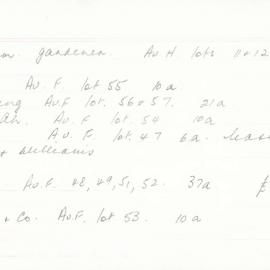 gardener. Av. H. lots 11 & 12
Av. F. lot 55 10a.
Av. F. lot. 56 & 57. 21a
Av. F. lot. 54 10a
Av. F. lot. 47 6a.
& Williams
Av. F. 48, 49, 51, 52. 37a £
& Co. Av. F. lot 53. 10a